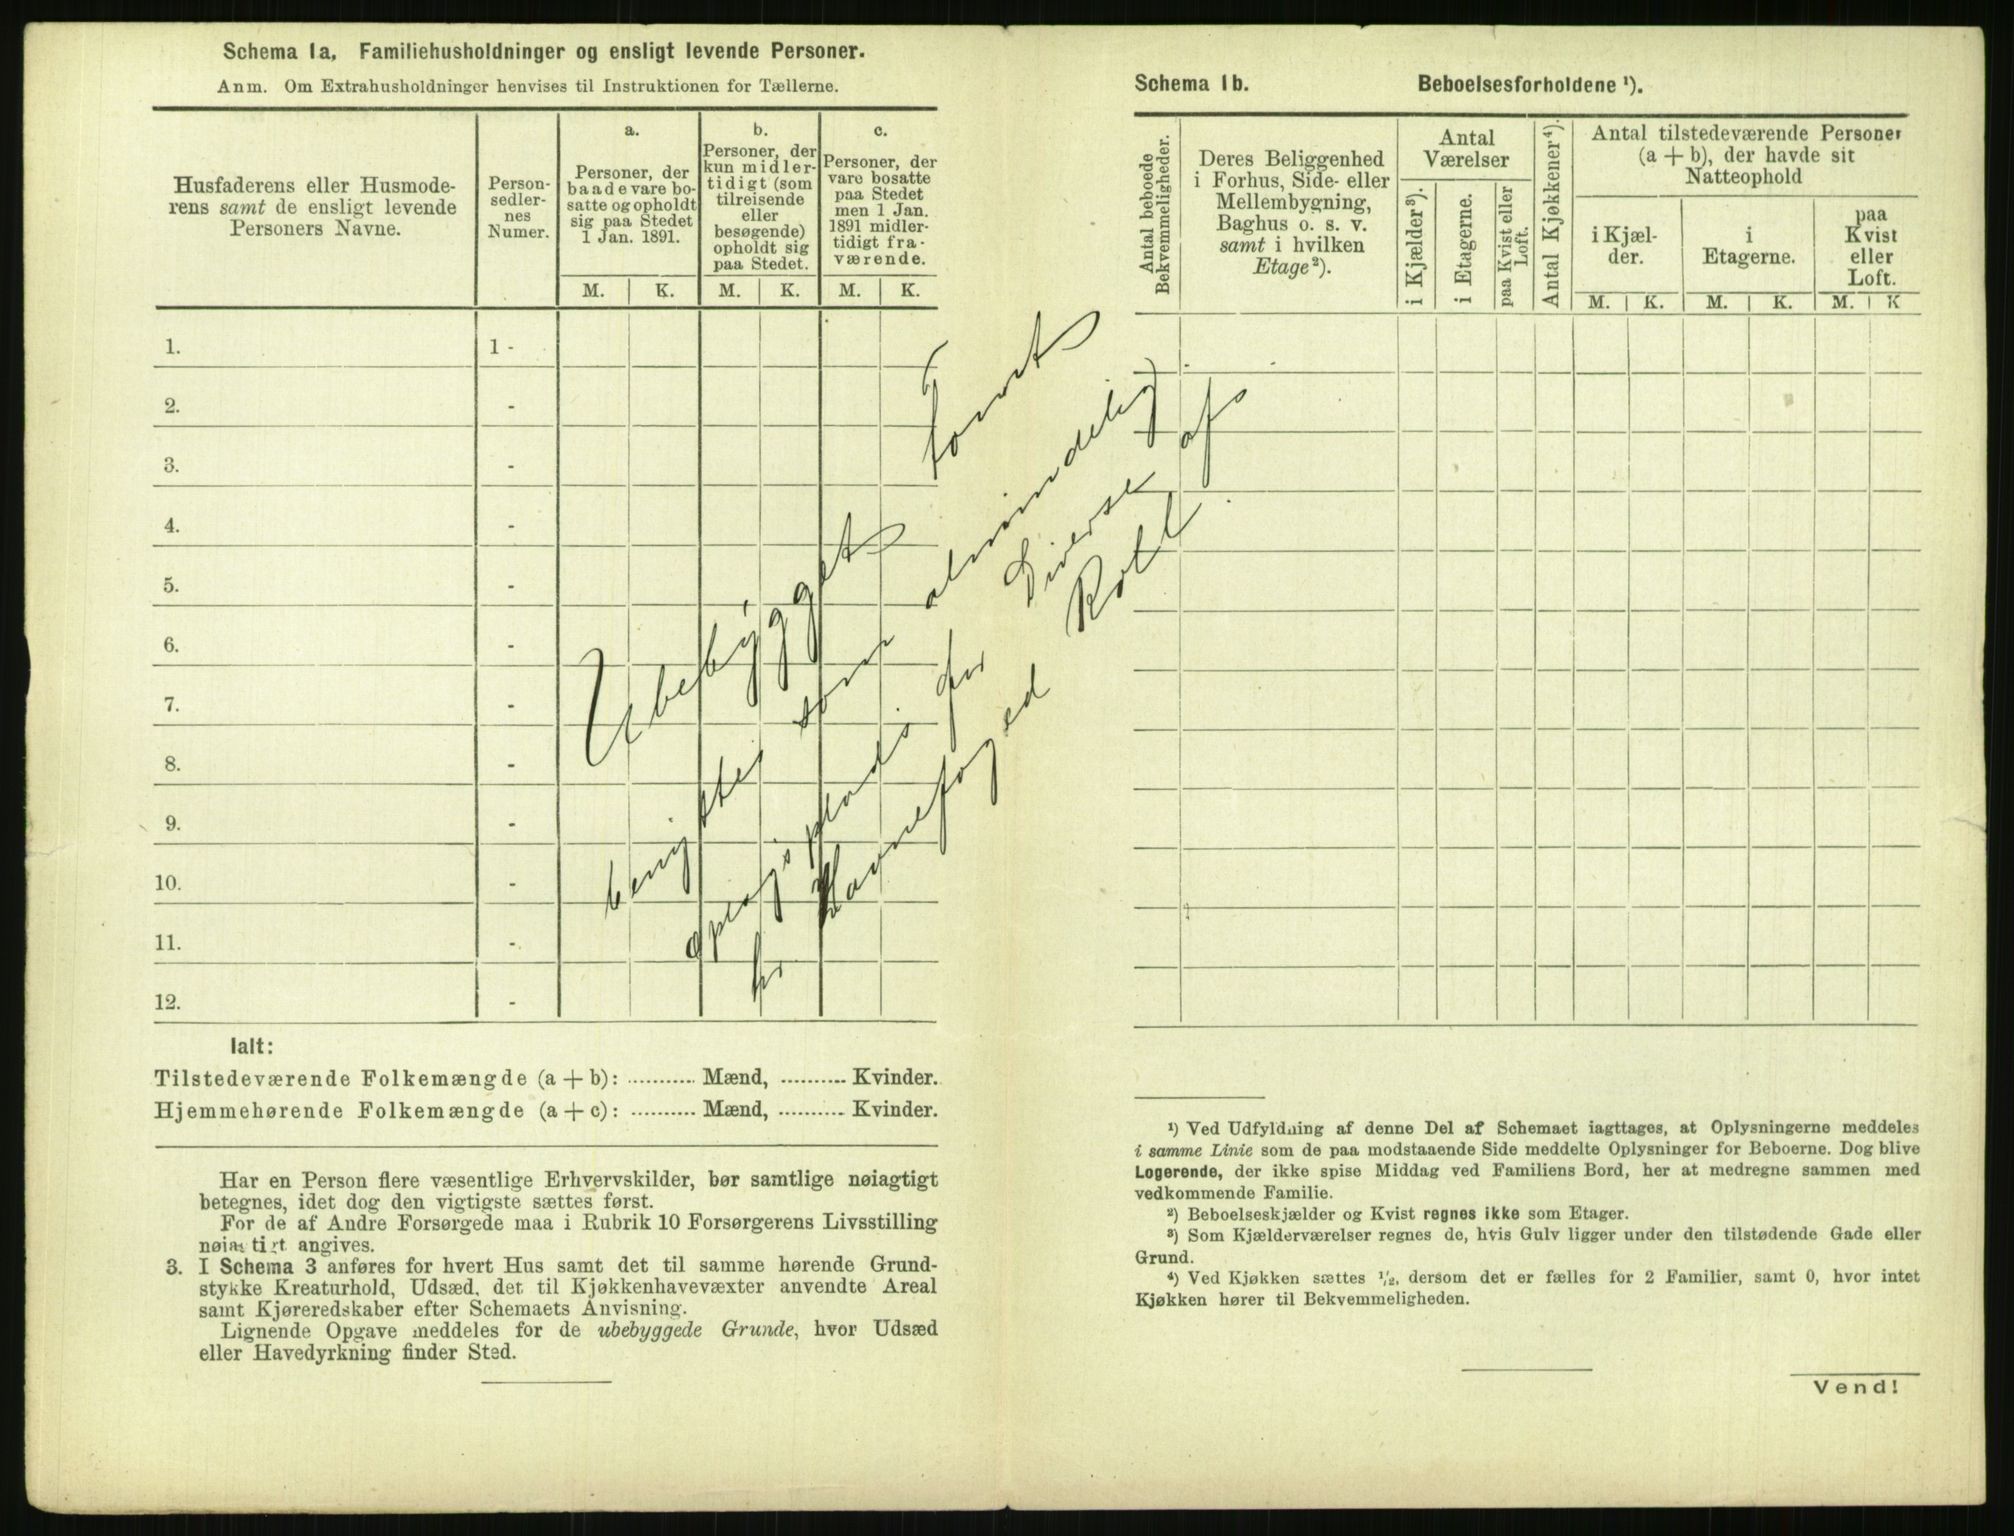 Schema 1a, Familiehusholdninger og ensligt levende Personer.
Anm. Om Extrahusholdninger henvises til Instruktionen for Tællerne.
Husfaderens eller Husmode-
rens samt de ensligt levende
Personers Navne.
Person-
sedler-
nes
Numer.
a.
Personer, der
baade vare bo-
satte og opholdt
sig paa Stedet
1 Jan. 1891.
b.
Personer, der
kun midler-
tidigt (som
tilreisende
eller
besøgende)
opholdt sig
paa Stedet.
c.
Personer, der
vare bosatte
paa Stedet
men 1 Jan.
1891 midler-
tidigt fra-
værende.
M. K. M. K. M. K.
1. 1 -
2. -
3. -
4. -
5. -
6. -
7. -
8. -
9. -
10. -
11. -
12. -
Ubebygget Tomt
benyttes som almindelig
oplagsplads for Diverse af
for Havnefoged Roll
Ialt:
Tilstedeværende Folkemængde (a + b): ........... Mænd, .......... Kvinder.
Hjemmehørende Folkemængde (a + c): .......... Mænd, .......... Kvinder.
Har en Person flere væsentlige Erhvervskilder, bør samtlige nøiagtigt
betegnes, idet dog den vigtigste sættes først.
For de af Andre Forsørgede maa i Rubrik 10 Forsørgerens Livsstilling
nøiagtigt angives.
3. I Schema 3 anføres for hvert Hus samt det til samme hørende Grund-
stykke Kreaturhold, Udsæd, det til Kjøkkenhavevæxter anvendte Areal
samt Kjøreredskaber efter Schemaets Anvisning.
Lignende Opgave meddeles for de ubebyggede Grunde, hvor Udsæd
eller Havedyrkning finder Sted.
Schema 1b. Beboelsesforholdene ¹).
Antal beboede
Bekvemmeligheder.
Deres Beliggenhed
i Forhus, Side- eller
Mellembygning,
Baghus o. s. v.
samt i hvilken
Etage ²).
Antal
Værelser
i Kjælder ³).
i Etagerne.
paa Kvist eller
Loft.
Antal Kjøkkener ⁴).
Antal tilstedeværende Personer
(a + b), der havde sit
Natteophold
i Kjæl-
der.
i
Etagerne.
paa
Kvist
eller
Loft.
M. K. M. K. M. K
¹) Ved Udfyldning af denne Del af Schemaet iagttages, at Oplysningerne meddeles
i samme Linie som de paa modstaaende Side meddelte Oplysninger for Beboerne. Dog blive
Logerende, der ikke spise Middag ved Familiens Bord, her at medregne sammen med
vedkommende Familie.
²) Beboelseskjælder og Kvist regnes ikke som Etager.
³) Som Kjælderværelser regnes de, hvis Gulv ligger under den tilstødende Gade eller
Grund.
⁴) Ved Kjøkken sættes ¹/₂, dersom det er fælles for 2 Familier, samt 0, hvor intet
Kjøkken hører til Bekvemmeligheden.
Vend!